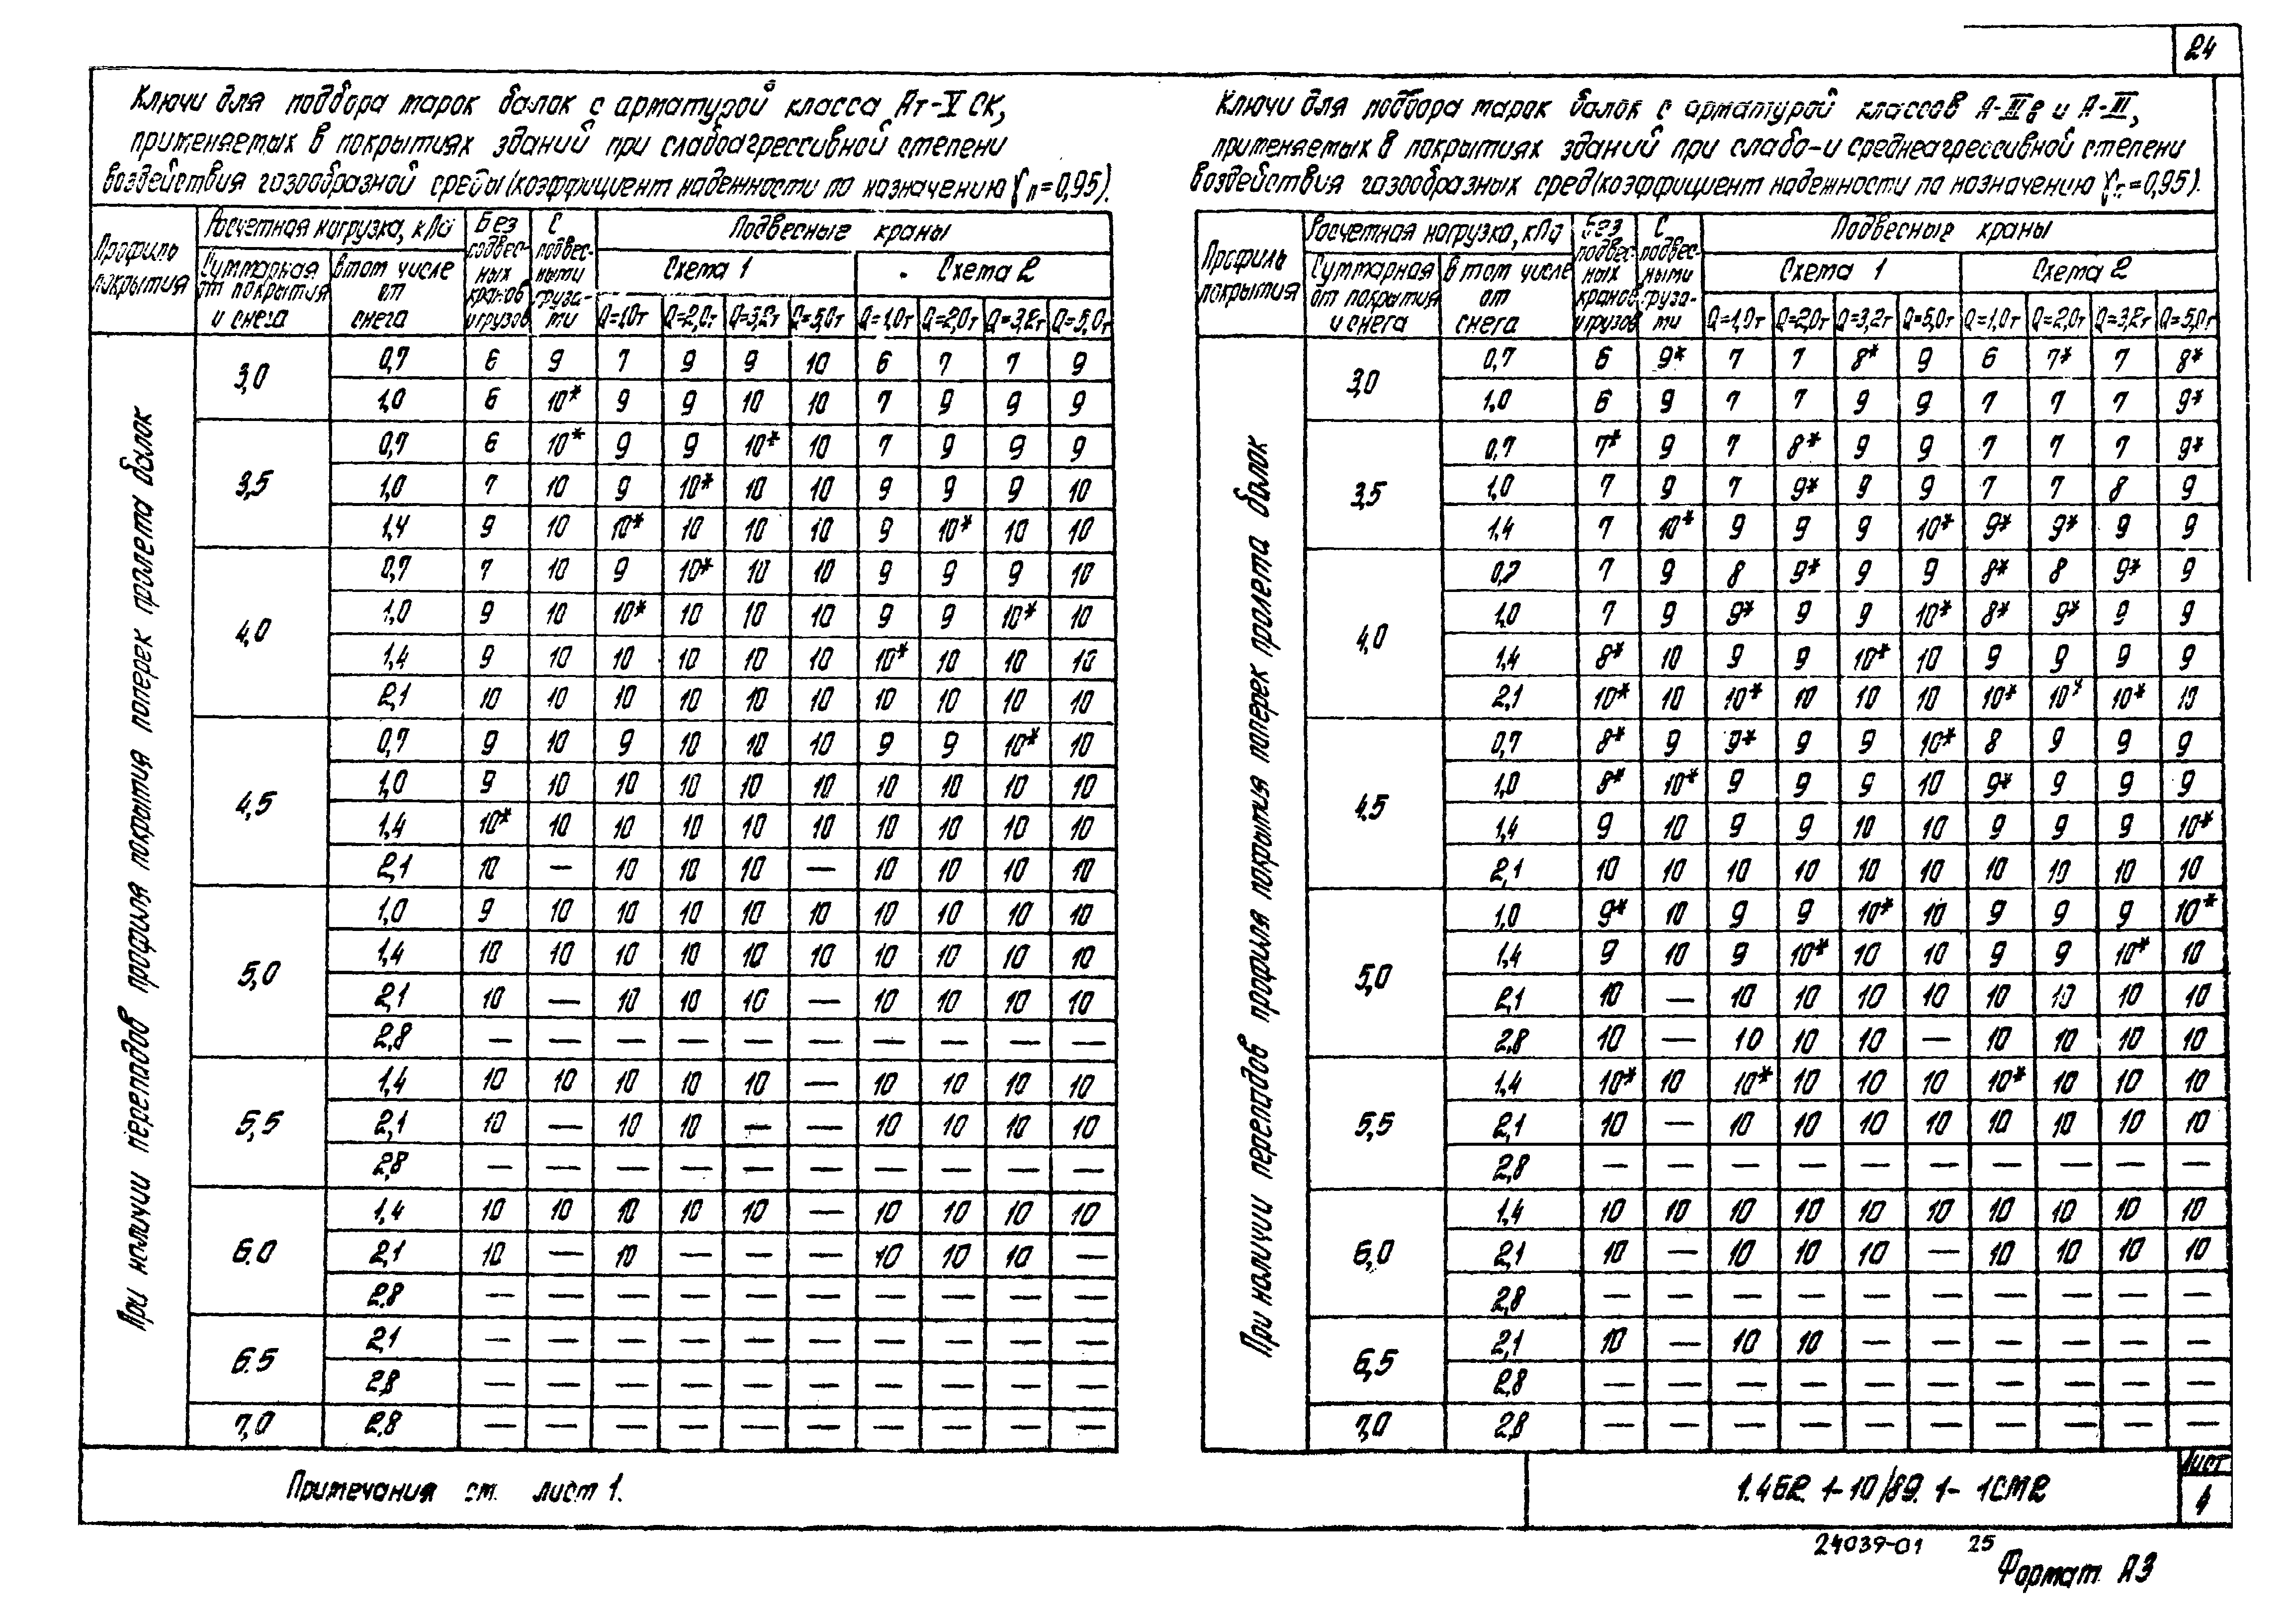 24
Ключи для подбора марок балок с арматурой класса Ат-V СК,
применяемых в покрытиях зданий при слабоагрессивной степени
воздействия газообразной среды (коэффициент надежности по назначению γп=0,95).
Профиль покрытия | Расчетная нагрузка, кПа | Без подвесных кранов и грузов | С подвесными грузами | Подвесные краны
Суммарная от покрытия и снега | В том числе от снега | Схема 1 | Схема 2
Q=1,0т Q=2,0т Q=3,2т Q=5,0т Q=1,0т Q=2,0т Q=3,2т Q=5,0т
При наличии перепадов профиля покрытия поперек пролета балок
3,0 0,7 6 9 7 9 9 10 6 7 7 9
1,0 6 10* 9 9 10 10 7 9 9 9
3,5 0,7 6 10* 9 9 10* 10 7 9 9 9
1,0 7 10 9 10* 10 10 9 9 9 10
1,4 9 10 10* 10 10 10 9 10* 10 10
4,0 0,7 7 10 9 10* 10 10 9 9 9 10
1,0 9 10 10* 10 10 10 9 9 10* 10
1,4 9 10 10 10 10 10 10* 10 10 10
2,1 10 10 10 10 10 10 10 10 10 10
4,5 0,7 9 10 9 10 10 10 9 9 10* 10
1,0 9 10 10 10 10 10 10 10 10 10
1,4 10* 10 10 10 10 10 10 10 10 10
2,1 10 — 10 10 10 — 10 10 10 10
5,0 1,0 9 10 10 10 10 10 10 10 10 10
1,4 10 10 10 10 10 10 10 10 10 10
2,1 10 — 10 10 10 — 10 10 10 10
2,8 — — — — — — — — — —
5,5 1,4 10 10 10 10 10 — 10 10 10 10
2,1 10 — 10 10 — — 10 10 10 10
2,8 — — — — — — — — — —
6.0 1,4 10 10 10 10 10 — 10 10 10 10
2,1 10 — 10 — — — 10 10 10 —
2.8 — — — — — — — — — —
6.5 2,1 — — — — — — — — — —
2,8 — — — — — — — — — —
7,0 2.8 — — — — — — — — — —
Ключи для подбора марок балок с арматурой классов А-IIIв и А-III,
применяемых в покрытиях зданий при слабо-и среднеагрессивной степени
воздействия газообразных сред (коэффициент надежности по назначению γп=0,95).
Профиль покрытия | Расчетная нагрузка, кПа | Без подвесных кранов и грузов | С подвесными грузами | Подвесные краны
Суммарная от покрытия и снега | В том числе от снега | Схема 1 | Схема 2
Q=1,0т Q=2,0т Q=3,2т Q=5,0т Q=1,0т Q=2,0т Q=3,2т Q=5,0т
При наличии перепадов профиля покрытия поперек пролета балок
3,0 0,7 6 9* 7 7 8* 9 6 7* 7 8*
1,0 6 9 7 7 9 9 7 7 7 9*
3,5 0,7 7* 9 7 8* 9 9 7 7 7 9*
1,0 7 9 7 9* 9 9 7 7 8 9
1,4 7 10* 9 9 9 10* 9* 9* 9 9
4,0 0,7 7 9 8 9* 9 9 8* 8 9* 9
1,0 7 9 9* 9 9 10* 8* 9* 9 9
1,4 8* 10 9 9 10* 10 9 9 9 9
2,1 10* 10 10* 10 10 10 10* 10* 10* 10
4,5 0,7 8* 9 9* 9 9 10* 8 9 9 9
1,0 8* 10* 9 9 9 10 9* 9 9 9
1,4 9 10 9 9 10 10 9 9 9 10*
2,1 10 10 10 10 10 10 10 10 10 10
5,0 1,0 9* 10 9 9 10* 10 9 9 9 10*
1,4 9 10 9 10* 10 10 9 9 10* 10
2,1 10 — 10 10 10 10 10 10 10 10
2.8 10 — 10 10 10 — 10 10 10 10
5,5 1,4 10* 10 10* 10 10 10 10* 10 10 10
2,1 10 — 10 10 10 10 10 10 10 10
2,8 — — — — — — — — — —
6,0 1.4 10 10 10 10 10 10 10 10 10 10
2,1 10 — 10 10 10 — 10 10 10 10
2,8 — — — — — — — — — —
6,5 2,1 10 — 10 10 — — — — — —
2,8 — — — — — — — — — —
7,0 2,8 — — — — — — — — — —
Примечания см. лист 1.
1.462.1-10/89.1-1СМ2
Лист
4
24039-01 25
Формат А3